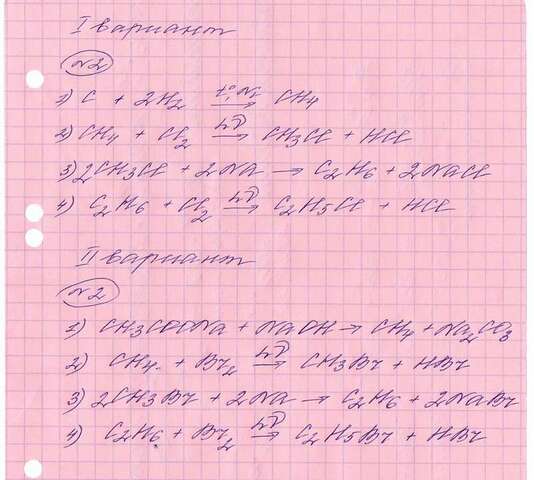 I вариант
№2
1) C + 2H2 t°, Ni → CH4
2) CH4 + Cl2 hν → CH3Cl + HCl
3) 2CH3Cl + 2Na → C2H6 + 2NaCl
4) C2H6 + Cl2 hν → C2H5Cl + HCl
II вариант
№2
1) CH3COONa + NaOH → CH4 + Na2CO3
2) CH4 + Br2 hν → CH3Br + HBr
3) 2CH3Br + 2Na → C2H6 + 2NaBr
4) C2H6 + Br2 hν → C2H5Br + HBr